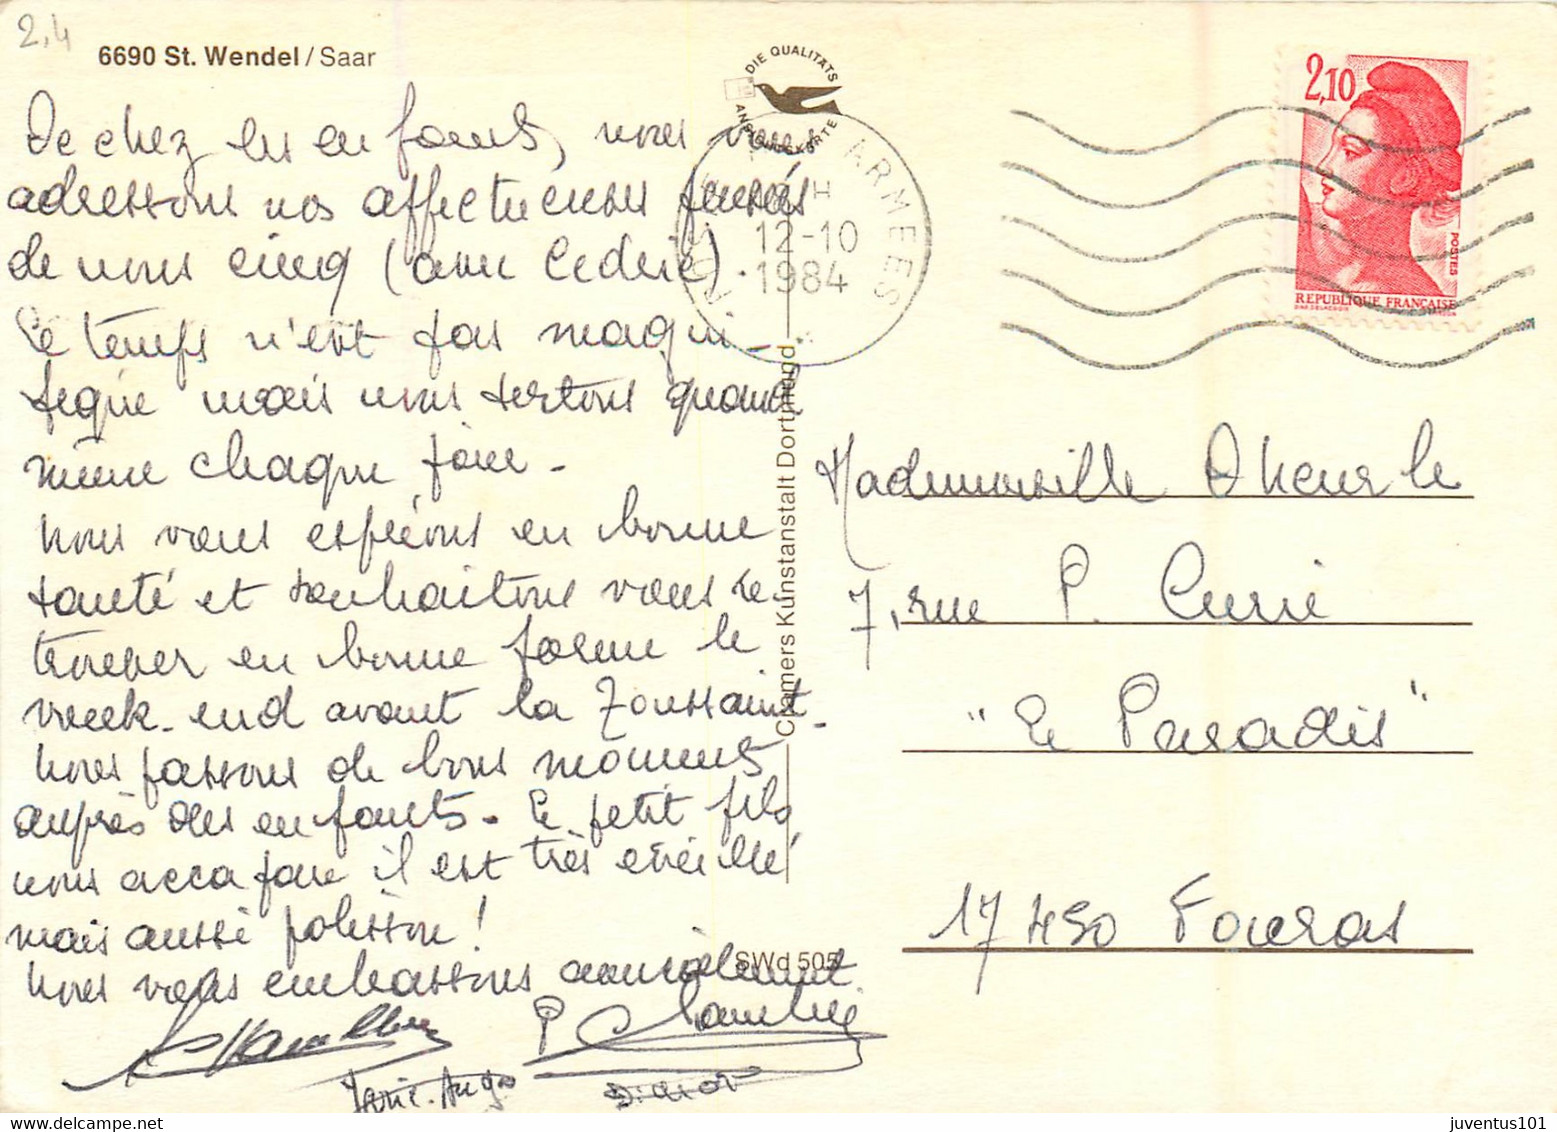 2,4
6690 St. Wendel / Saar
DIE QUALITÄTS
ANSICHTSKARTE
De chez les enfants, nous vous
adressons nos affectueuses pensées
de nous cinq (avec Cédric).
Le temps n'est pas magni-
fique mais nous sortons quand
même chaque jour.
Nous vous espérons en bonne
santé et souhaitons vous re-
trouver en bonne forme le
week-end avant la Toussaint.
Nous passons de bons moments
auprès des enfants. Le petit fils
nous accapare il est très éveillé
mais aussi polisson !
Nous vous embrassons amicalement
P
Marie-Ange
Didier
ARMEES
H
12-10
1984
Cramers Kunstanstalt Dortmund
SWd 505
2,10
POSTES
REPUBLIQUE FRANÇAISE
Mademoiselle
7, rue P. Curie
"Le Paradis"
17450 Fouras
juventus101